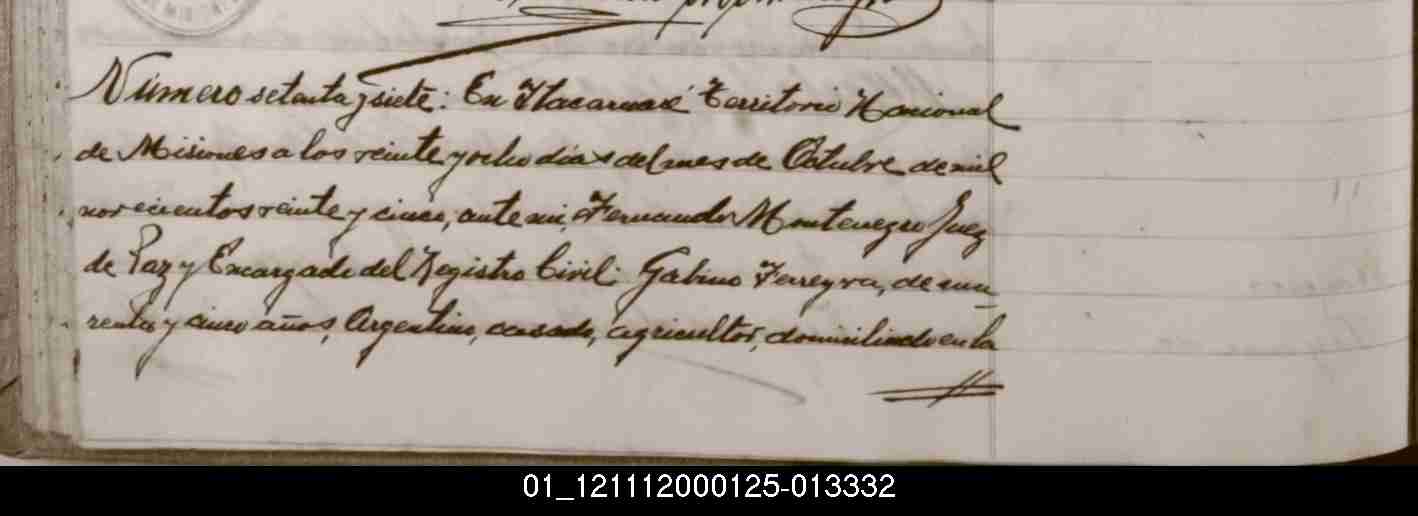 Número setenta y siete: En Itacaruaré Territorio Nacional
de Misiones a los veinte y ocho días del mes de Octubre de mil
novecientos veinte y cinco, ante mi, Fernando Montenegro Juez
de Paz y Encargado del Registro Civil: Gabino Ferreyra, de cua-
renta y cinco años, Argentino, casado, agricultor, domiciliado en la
01_121112000125-013332